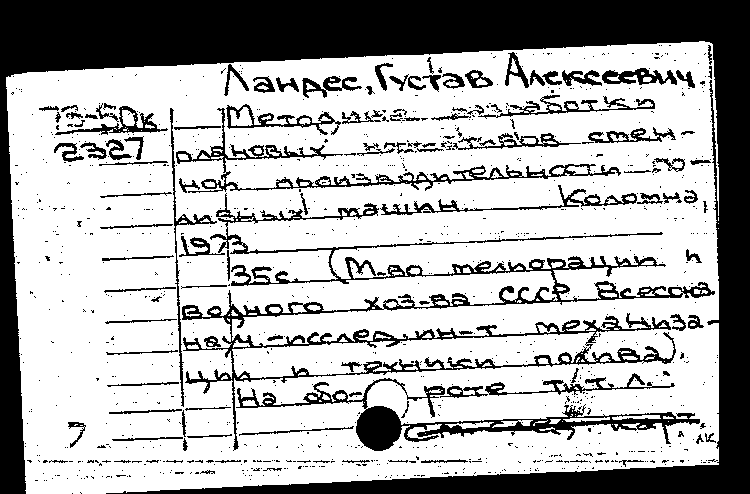 Ландес, Густав Алексеевич.
73-50к
2327
Методика разработки
плановых нормативов смен-
ной производительности по-
ливных машин. Коломна,
1973.
35с. (М-во мелиорации и
водного хоз-ва СССР. Всесоюз.
науч.-исслед. ин-т механиза-
ции и техники полива).
На обо- роте тит. л.:
См. след. карт.